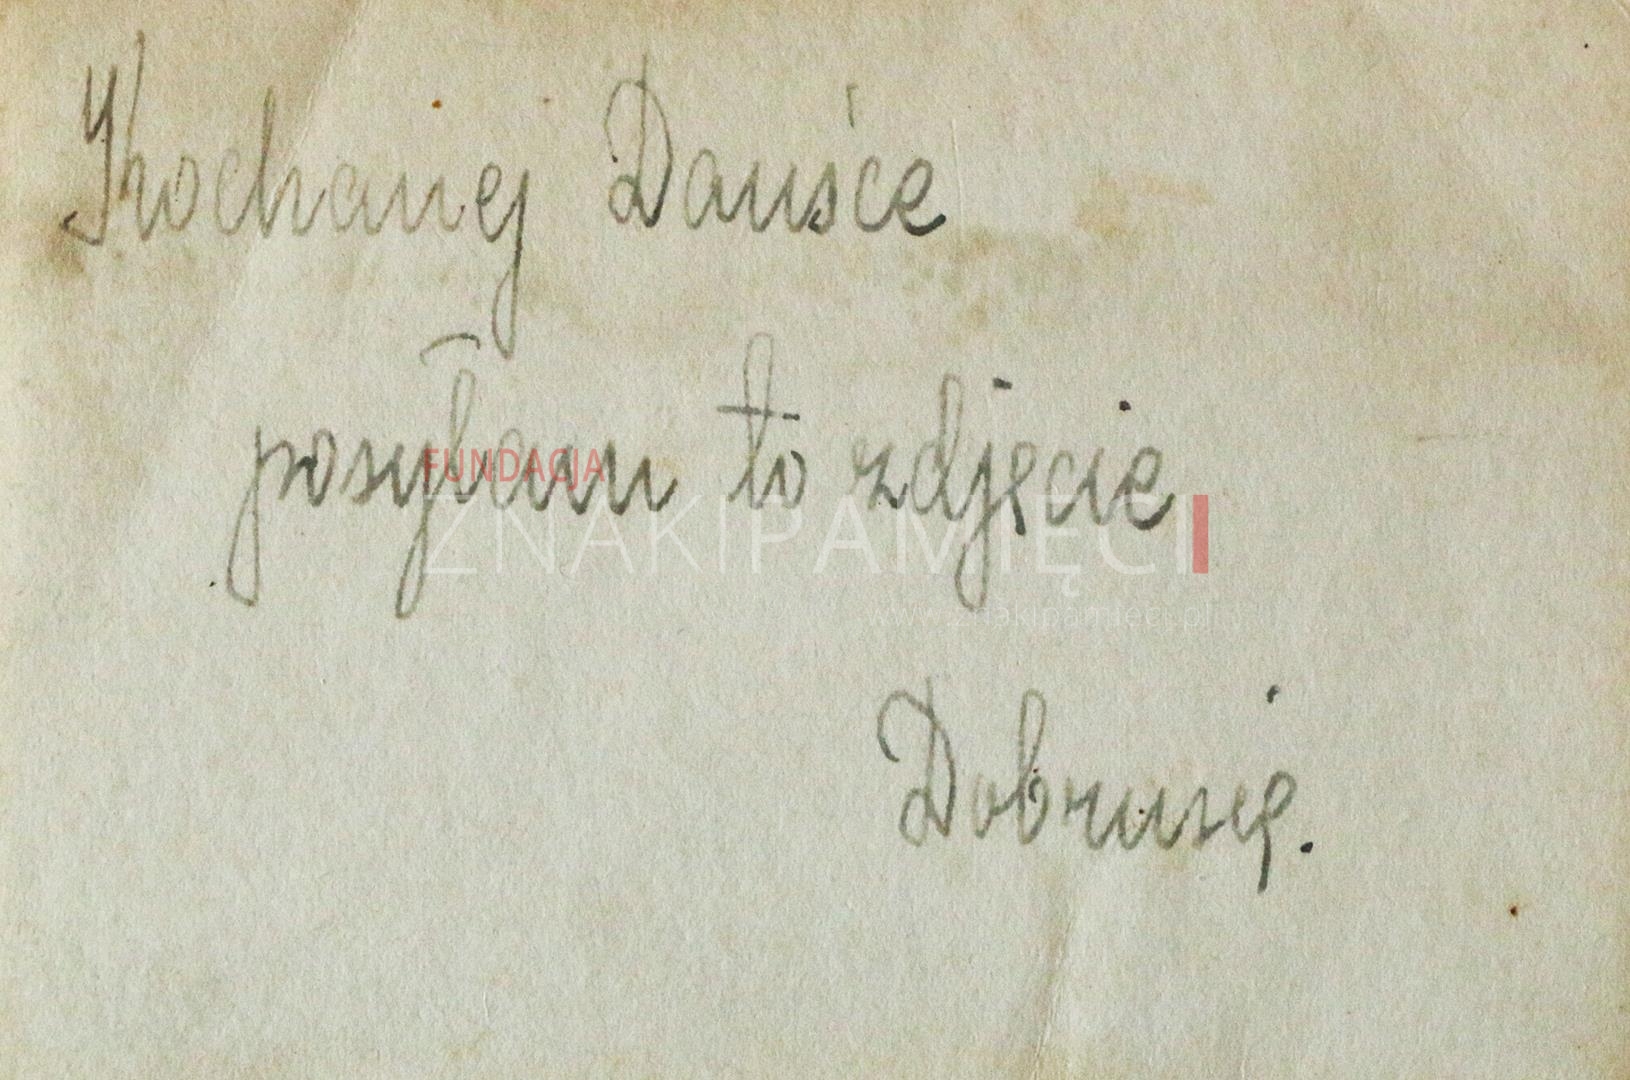 Kochanej Dauśce
posyłam to zdjęcie
Dobrusię.
FUNDACJA
ZNAKIPAMIĘCI
www.znakipamieci.pl